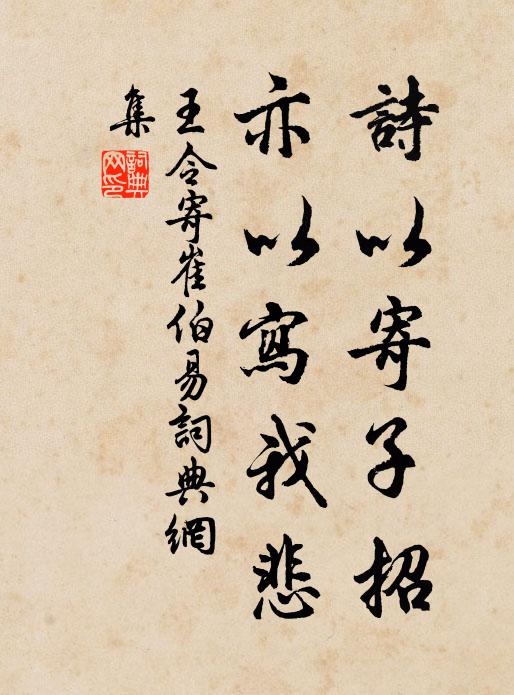 詩以寄子招
亦以寫我悲
王令寄崔伯易詞典網
集
詞典網印